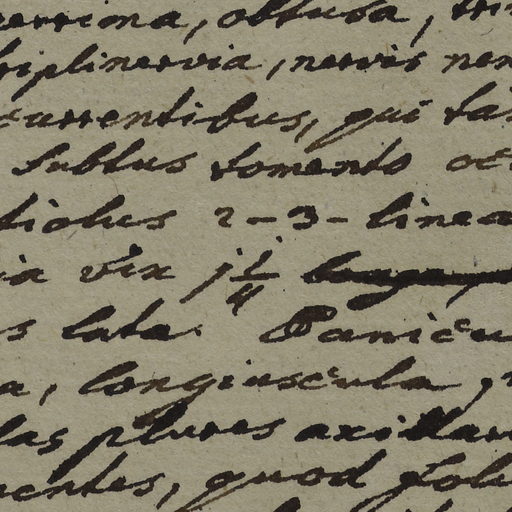 errima, obtusa, tri
triplinervia, nervis ner
currentibus, qui ta
subtus tomento oc
tiolus 2-3-linea
ia vix j 1/4 longa,
s lata. Panicu
a, longiuscula,
las plures axillar
entes, quod folu